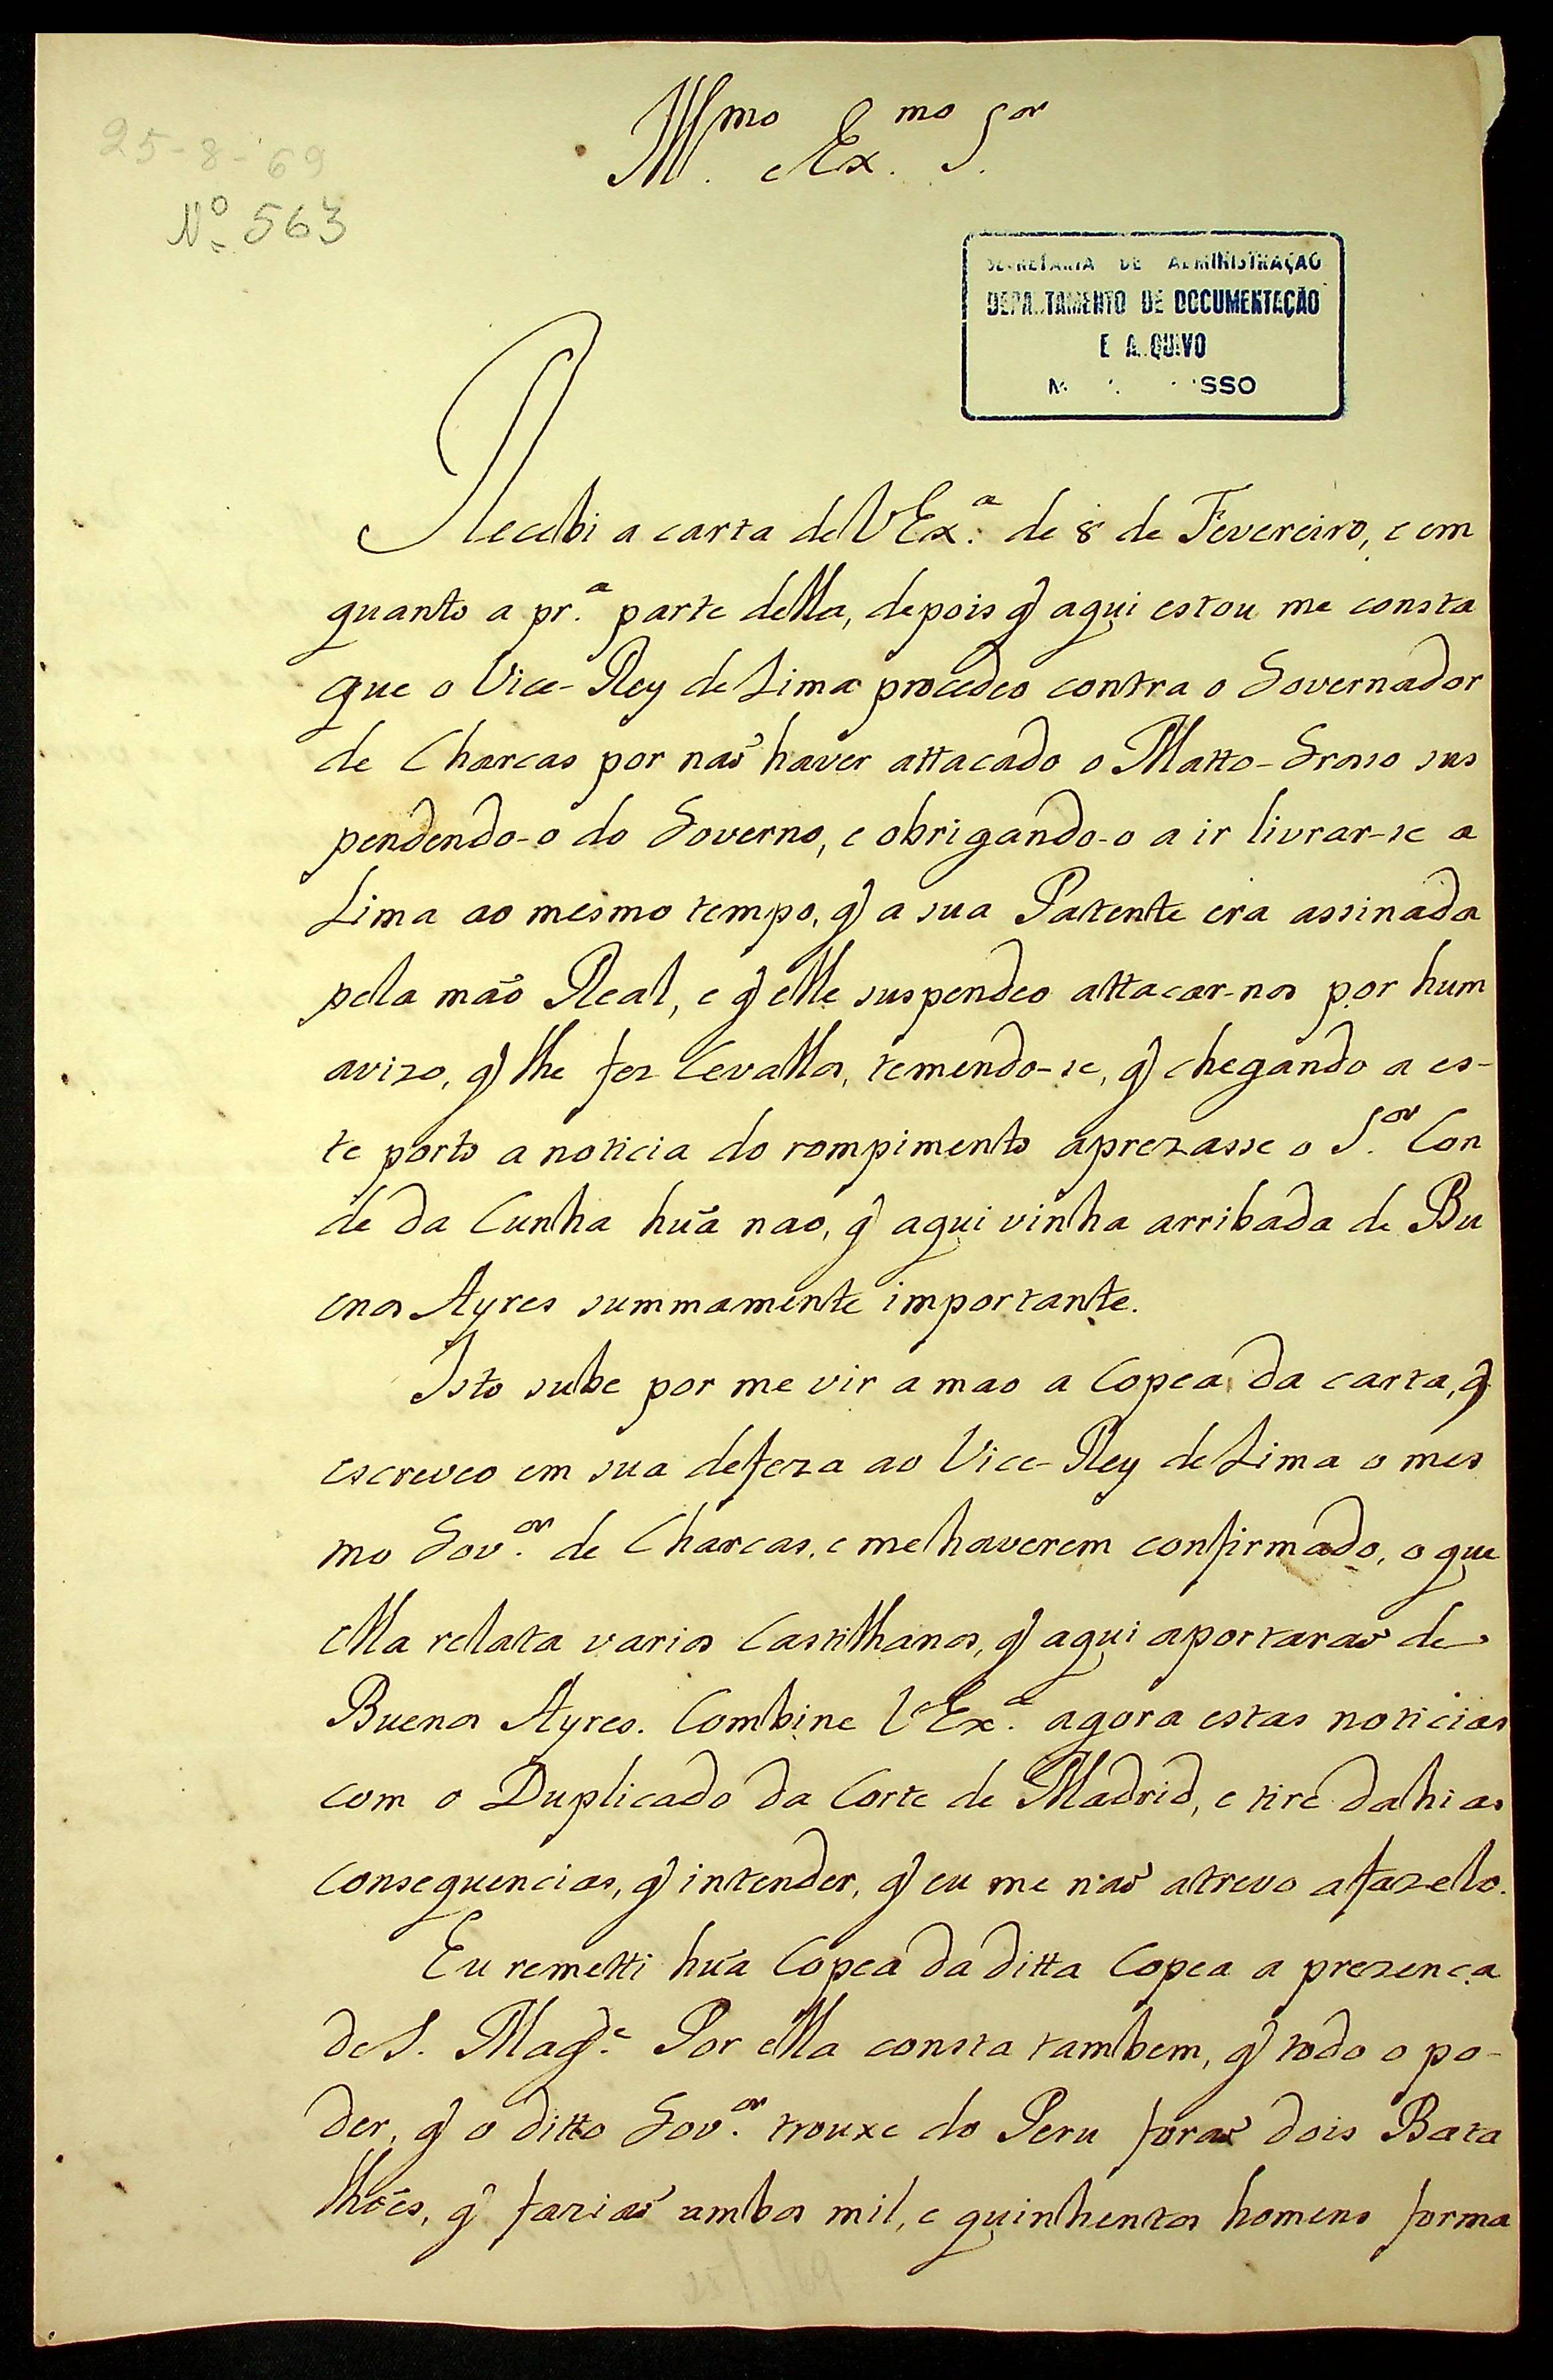 Ill.mo Ex.mo S.or
25-8-69
Nº 563
SECRETARIA DE ADMINISTRAÇÃO
DEPARTAMENTO DE DOCUMENTAÇÃO
E ARQUIVO
M SSO
Recebi a carta de VEx.a de 8 de Fevereiro, e em
quanto a pr.a parte della, depois q̃ aqui estou me consta
que o Vice-Rey de Lima procedeo contra o Governador
de Charcas por naõ haver attacado o Matto-Grosso sus
pendendo-o do Governo, e obrigando-o a ir livrar-se a
Lima ao mesmo tempo, q̃ a sua Patente era assinada
pela mão Real, e q̃ elle suspendeo attacar-nos por hum
avizo, q̃ lhe fez Cevallos, temendo-se, q̃ chegando a es-
te porto a noticia do rompimento aprezasse o S.or Con
de da Cunha hũa nao, q̃ aqui vinha arribada de Bu
enos Ayres summamente importante.
Isto sube por me vir a mao a Copea da carta, q̃
escreveo em sua defeza ao Vice-Rey de Lima o mes
mo Gov.or de Charcas, e me haverem confirmado, o que
ella relata varios Castilhanos, q̃ aqui aportaraõ de
Buenos Ayres. Combine VEx.a agora estas noticias
com o Duplicado da Corte de Madrid, e tire dahi as
consequencias, q̃ intender, q̃ eu me naõ atrevo a fazello.
Eu remetti hũa Copea da ditta Copea a prezença
de S. Mag.de Por ella consta tambem, q̃ todo o po-
der, q̃ o ditto Gov.or trouxe do Peru foraõ dois Bata
lhões, q̃ faziaõ ambos mil, e quinhentos homens forma